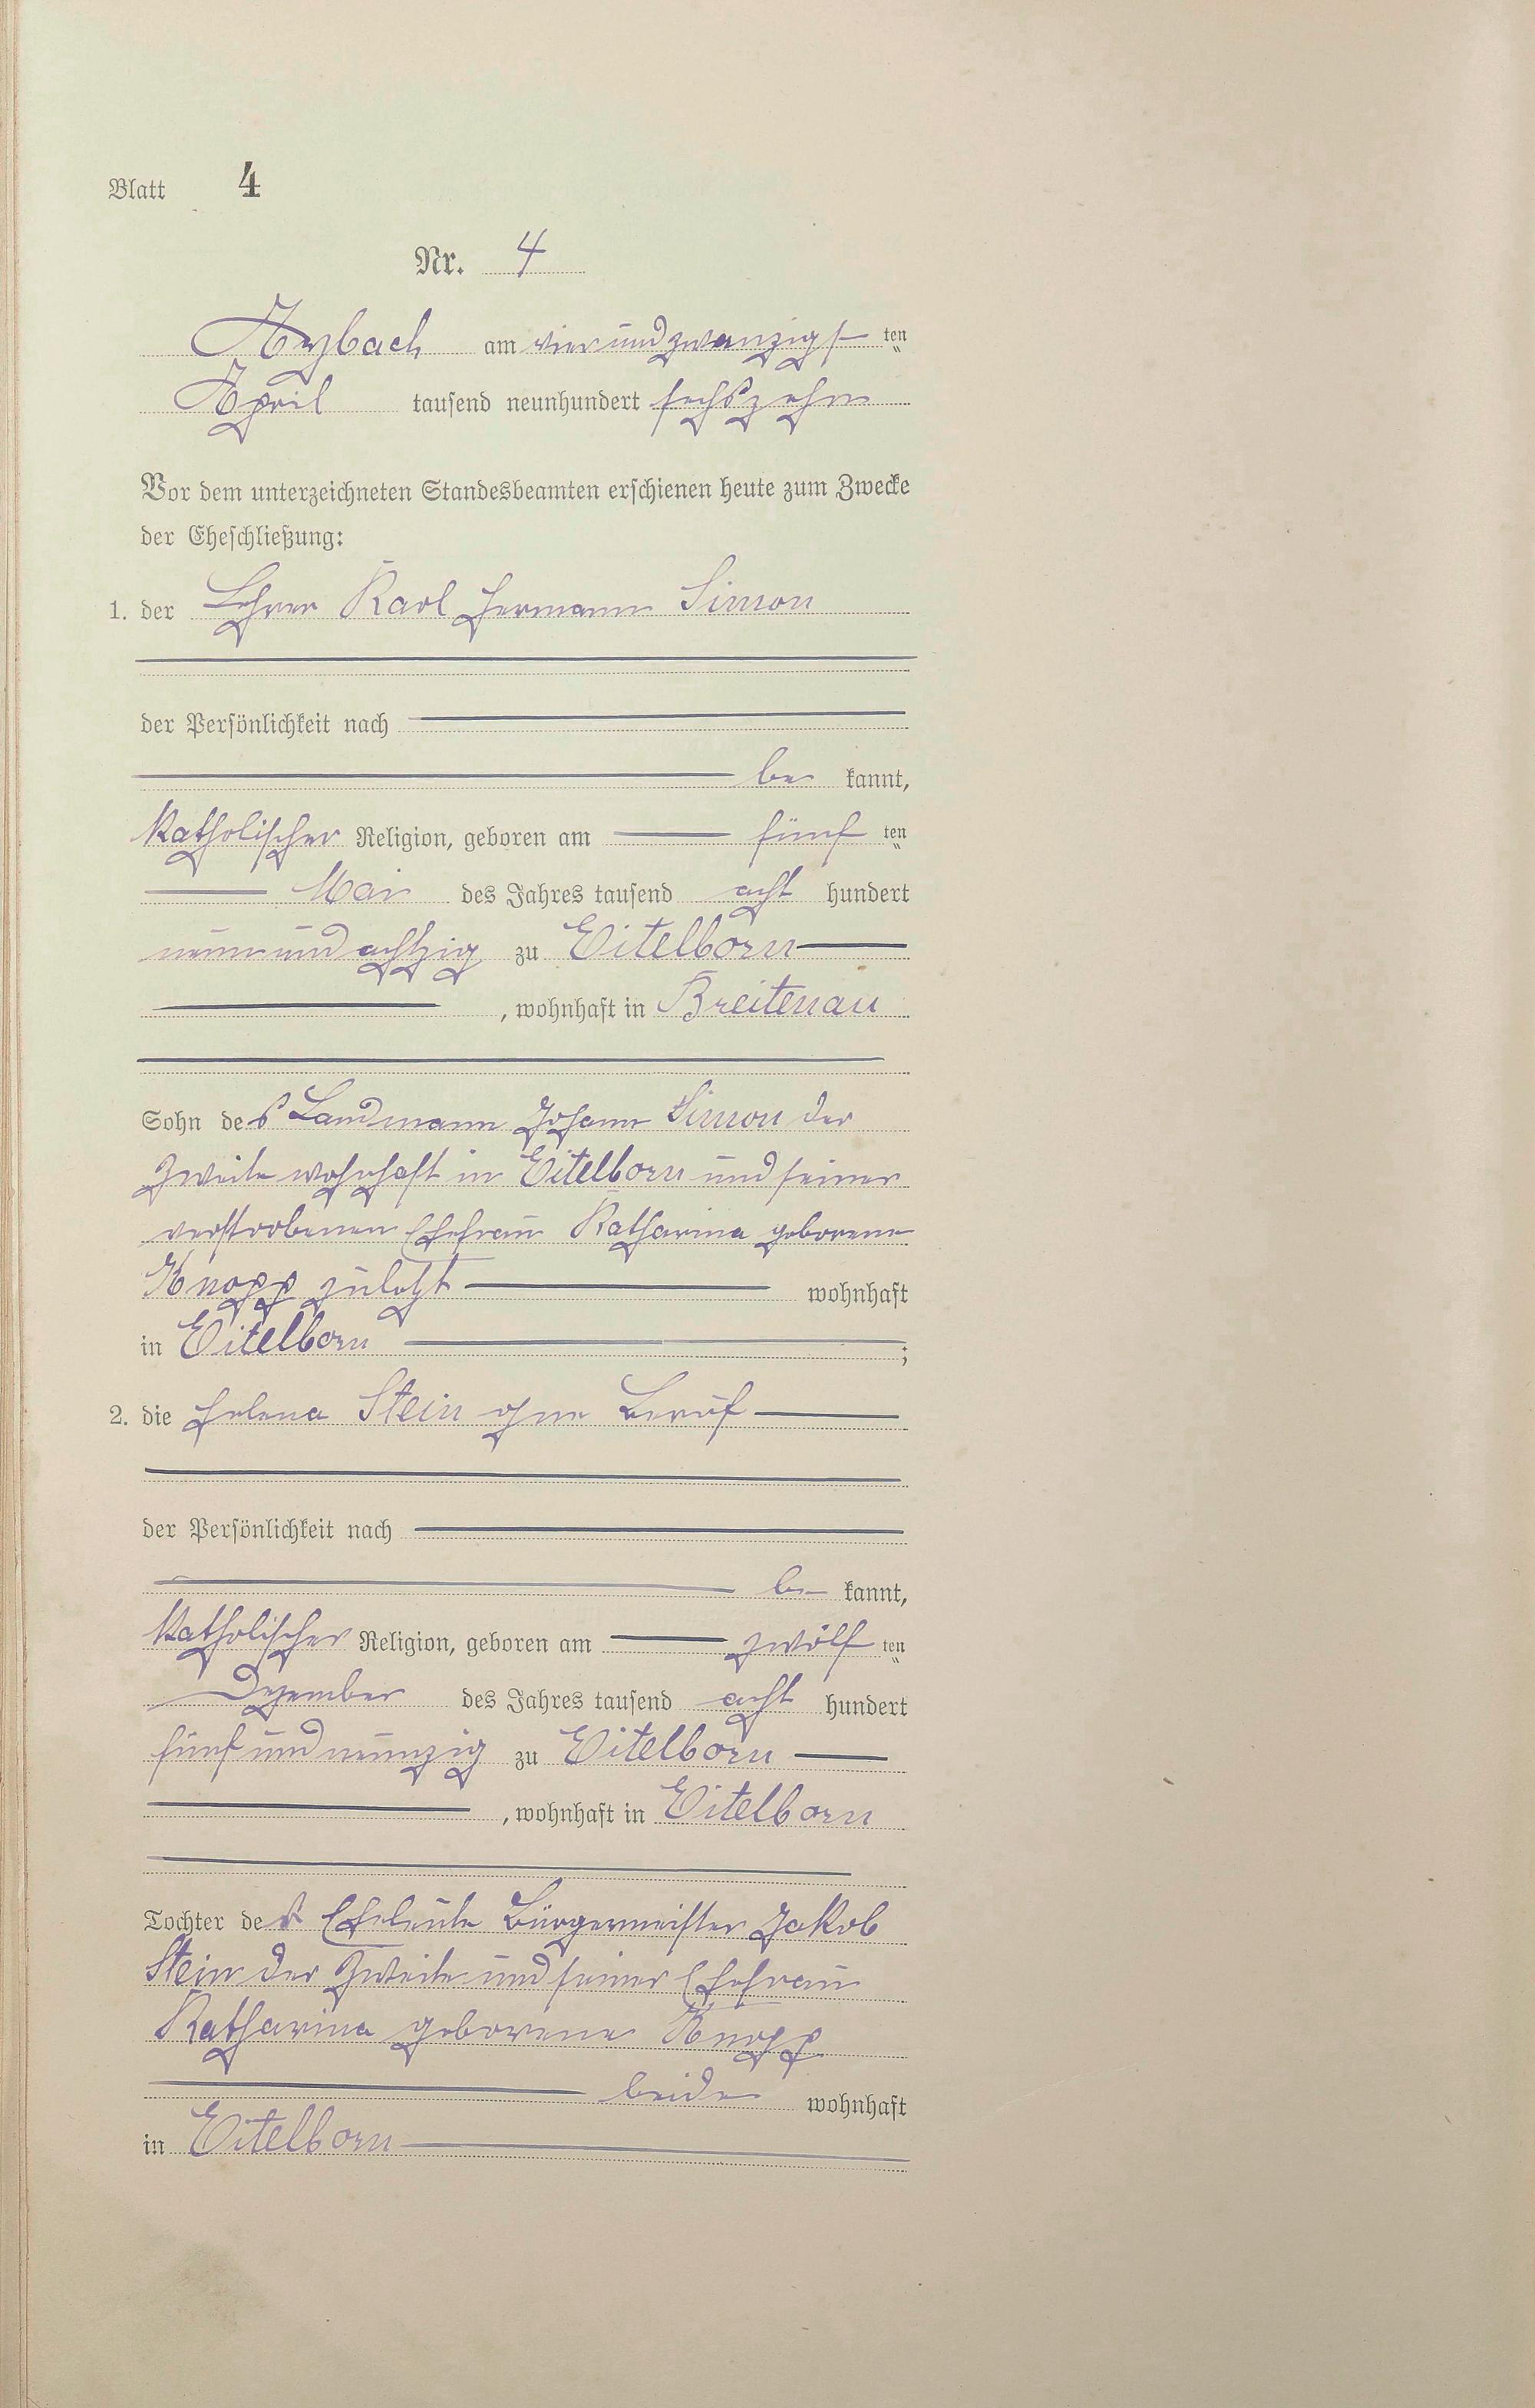 Blatt 4
Nr. 4
Arzbach am vierundzwanzigsten
April tausend neunhundert sechszehn
Vor dem unterzeichneten Standesbeamten erschienen heute zum Zwecke
der Eheschließung:
1. der Lehrer Karl Hermann Simon
der Persönlichkeit nach
be kannt,
katholischer Religion, geboren am fünf ten
Mai des Jahres tausend acht hundert
neunundachtzig zu Eitelborn
, wohnhaft in Breitenau
Sohn des Landmann Johann Simon der
Zweite wohnhaft in Eitelborn und seiner
verstorbenen Ehefrau Katharina geborene
Knopp zuletzt wohnhaft
in Eitelborn ;
2. die Helena Stein ohne Beruf
der Persönlichkeit nach
be kannt,
katholischer Religion, geboren am zwölf ten
Dezember des Jahres tausend acht hundert
fünfundneunzig zu Eitelborn
, wohnhaft in Eitelborn
Tochter der Eheleute Bürgermeister Jakob
Stein der Zweite und seiner Ehefrau
Katharina geborene Knopp
beide wohnhaft
in Eitelborn